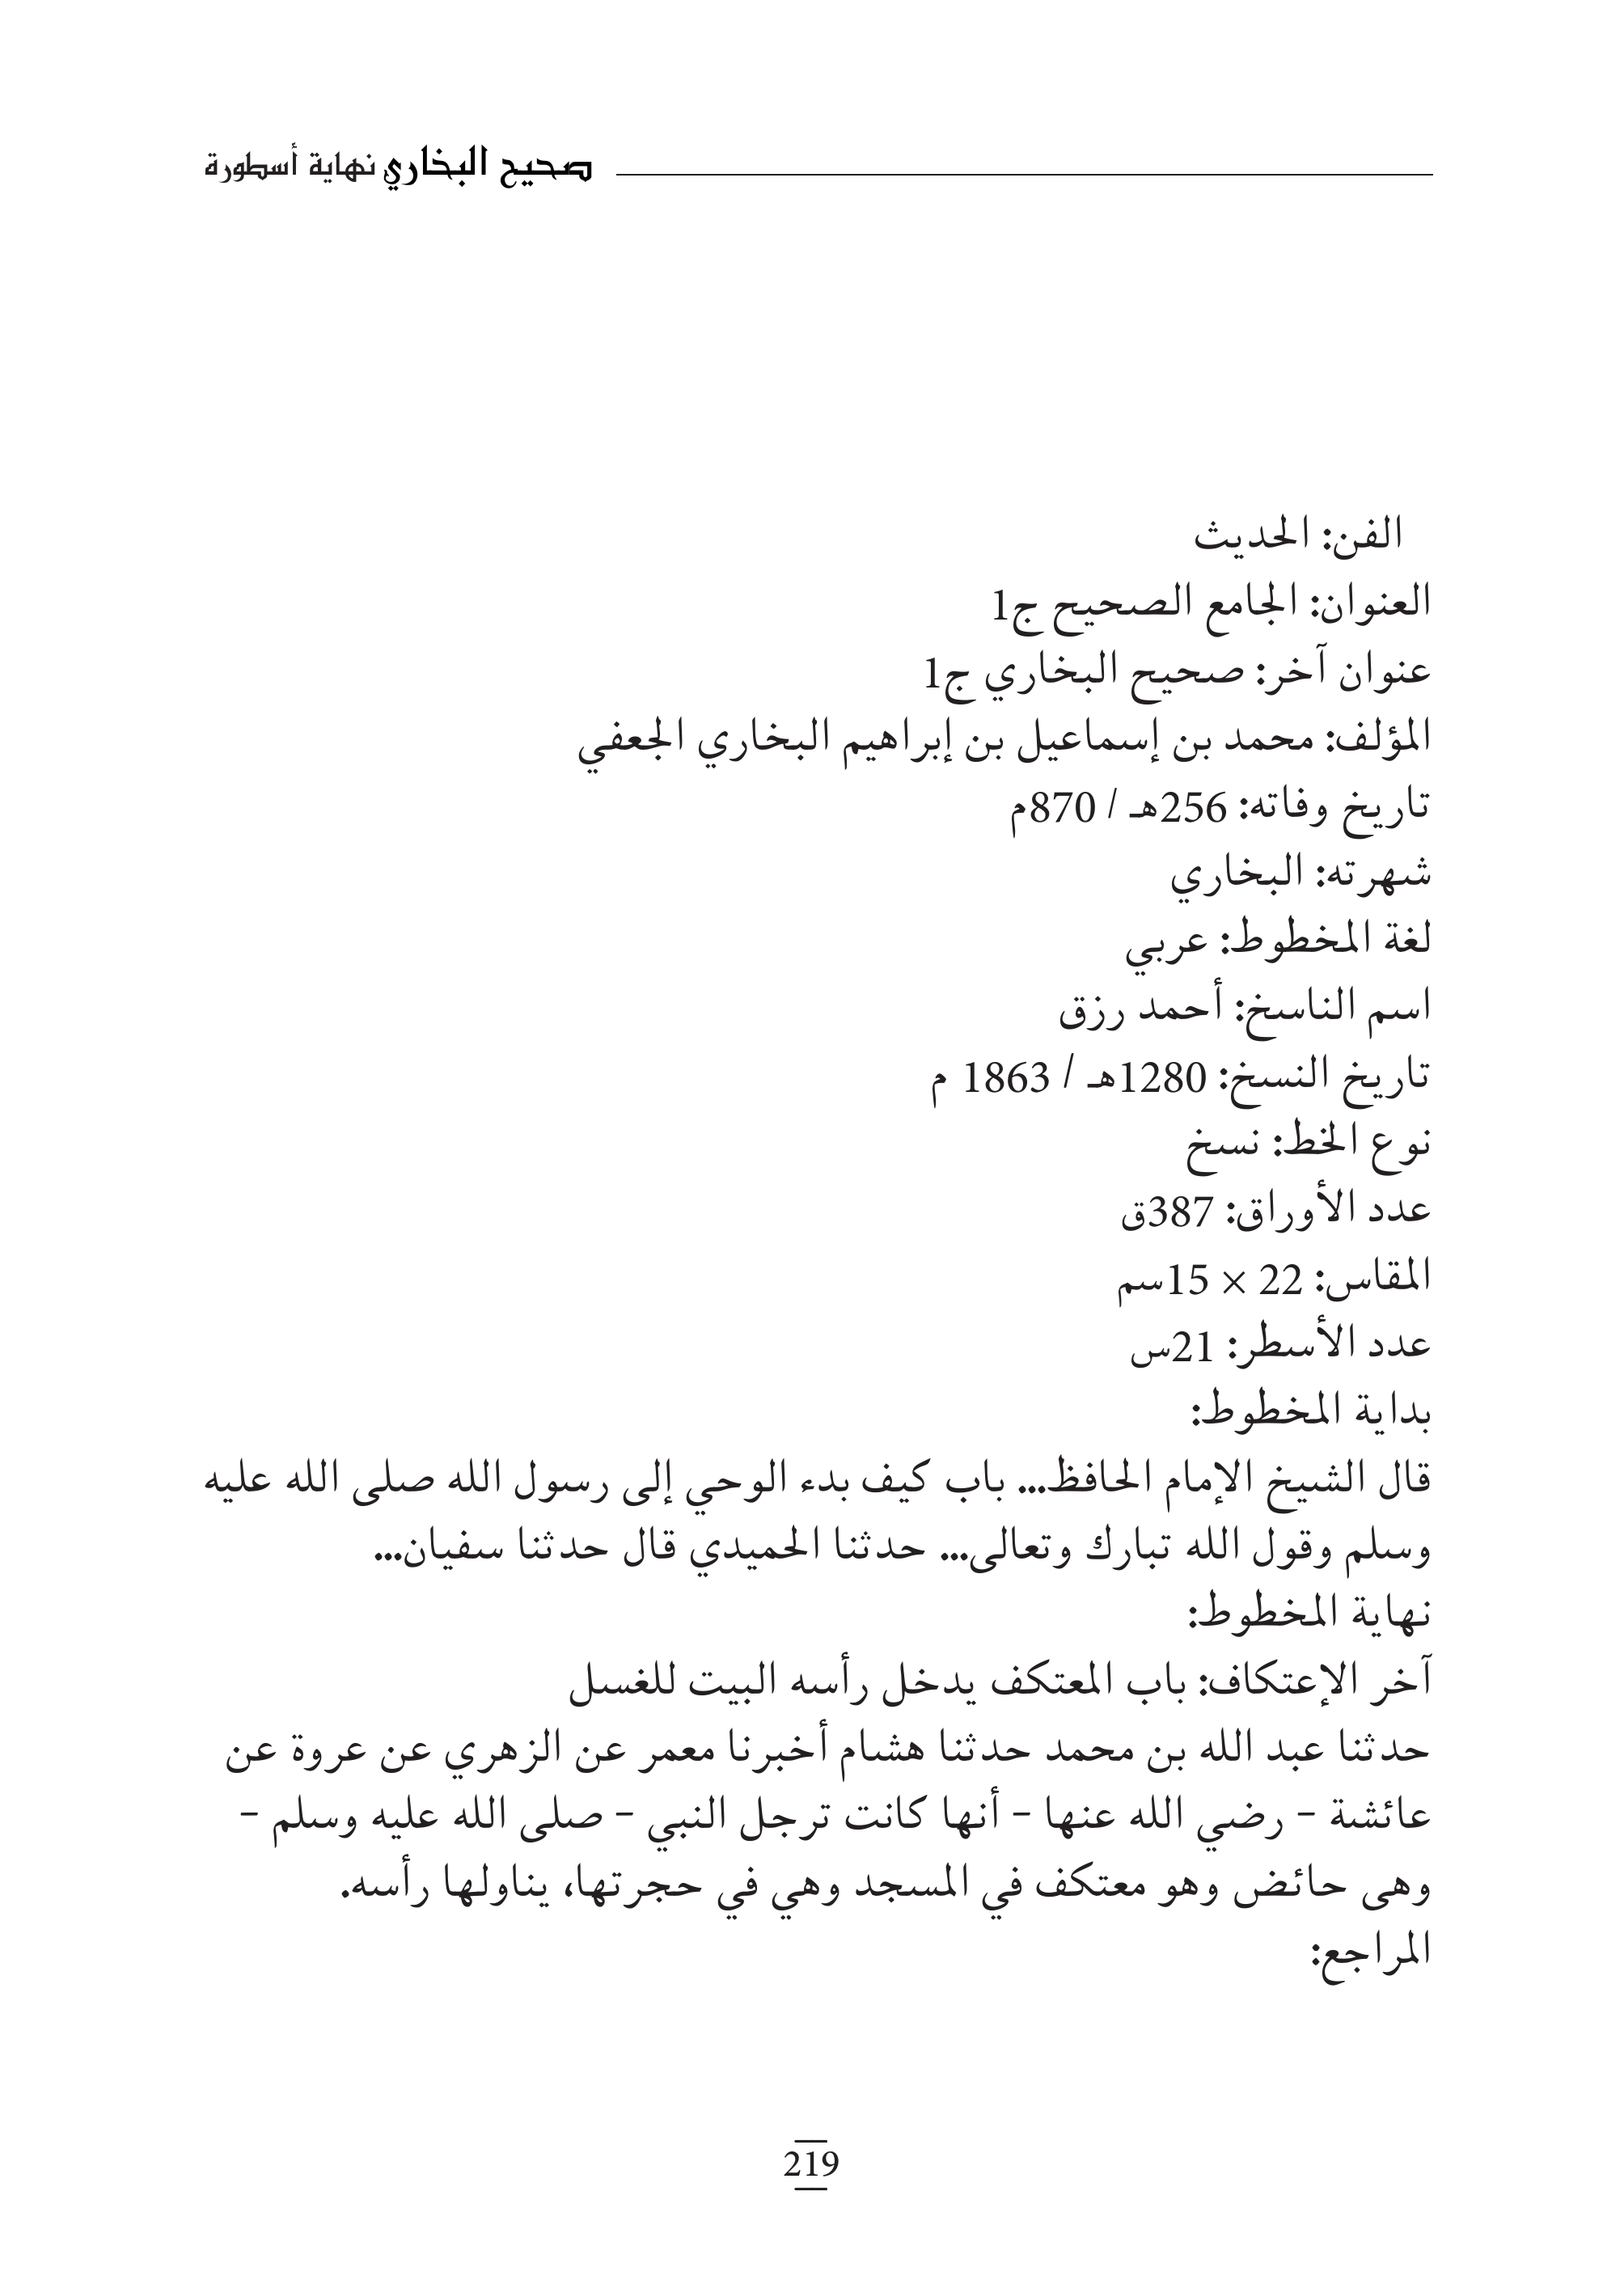 صحيح البخاري نهاية أسطورة
الفن: الحديث
العنوان: الجامع الصحيح ج1
عنوان آخر: صحيح البخاري ج1
المؤلف: محمد بن إسماعيل بن إبراهيم البخاري الجعفي
تاريخ وفاته: 256هـ / 870م
شهرته: البخاري
لغة المخطوط: عربي
اسم الناسخ: أحمد رزق
تاريخ النسخ: 1280هـ / 1863 م
نوع الخط: نسخ
عدد الأوراق: 387ق
المقاس: 22 × 15سم
عدد الأسطر: 21س
بداية المخطوط:
قال الشيخ الإمام الحافظ... باب كيف بدء الوحي إلى رسول الله صلى الله عليه
وسلم وقول الله تبارك وتعالى... حدثنا الحميدي قال حدثنا سفيان...
نهاية المخطوط:
آخر الإعتكاف: باب المعتكف يدخل رأسه البيت للغسل
حدثنا عبد الله بن محمد حدثنا هشام أخبرنا معمر عن الزهري عن عروة عن
عائشة – رضي الله عنها – أنها كانت ترجل النبي – صلى الله عليه وسلم –
وهى حائض وهو معتكف في المسجد وهي في حجرتها، يناولها رأسه.
المراجع:
219